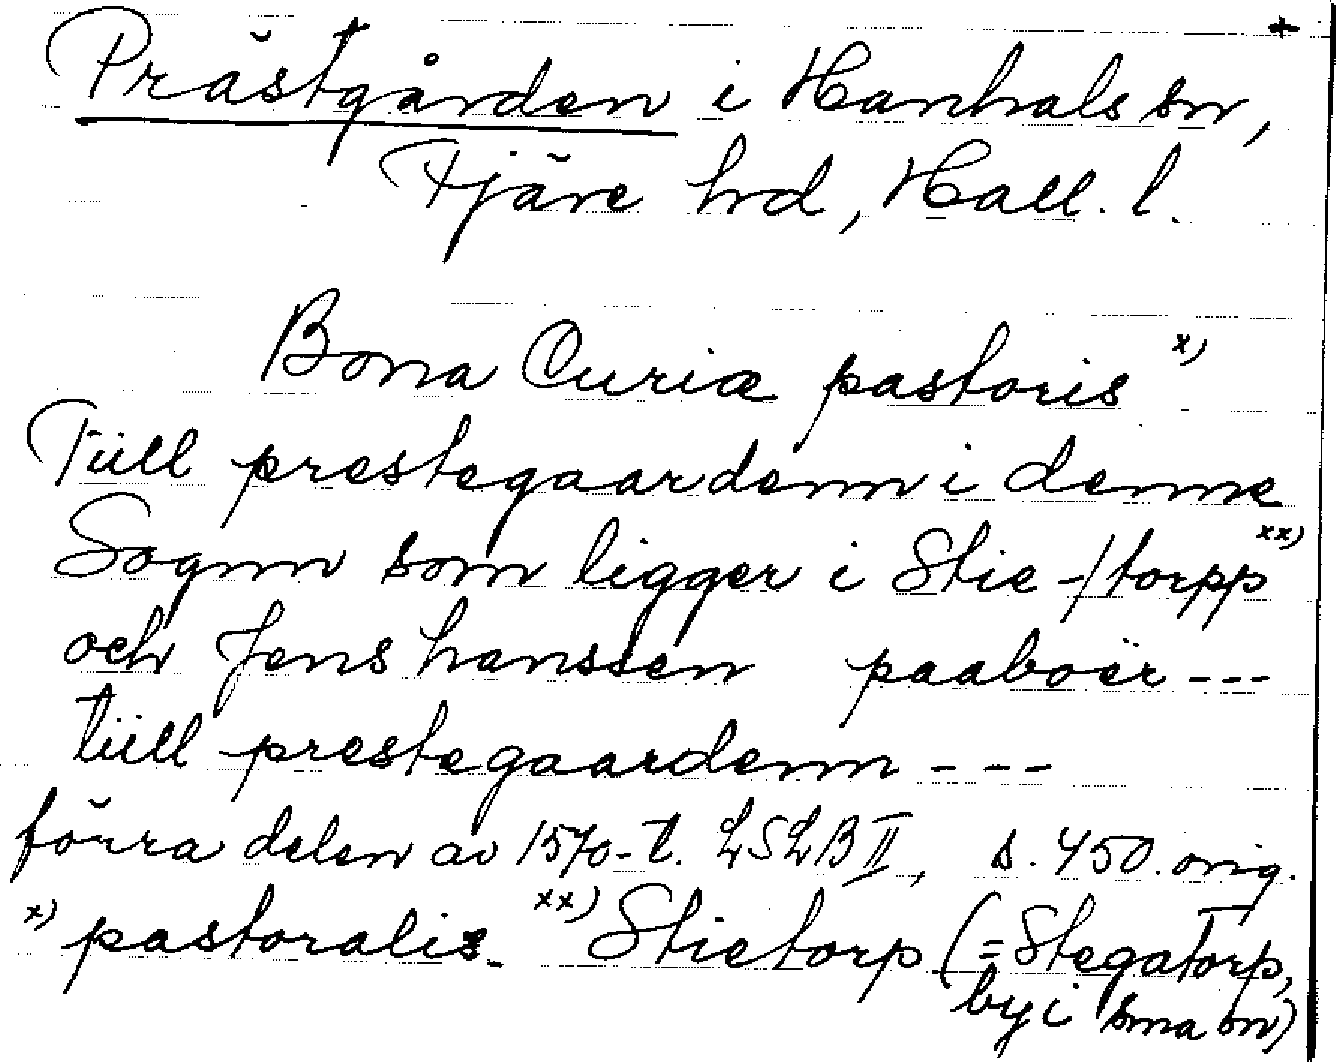 +
Prästgården i Hanhals sn,
Fjäre hrd, Hall. l.
Bona Curiæ pastoris x)
Tüll prestegaardenn i denne
Sognn som ligger i Stie-/torpp xx)
och Jens hanssen paaboër ---
tüll prestegaardenn ---
förra delen av 1570-t. LSLB II, s. 450. orig.
x) pastoralis. xx) Stietorp (= Stegatorp,
by i sma sn)